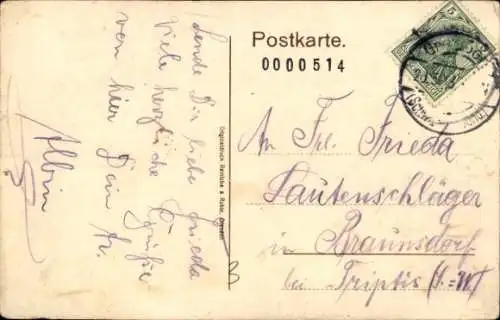 Postkarte.
0000514
5
An Frl. Frieda
Lautenschläger
in Braunsdorf
bei Triptis (S.-W.)
Sende Dir liebe Frieda
viele herzliche Grüße
von hier Dein Fr.
Albin